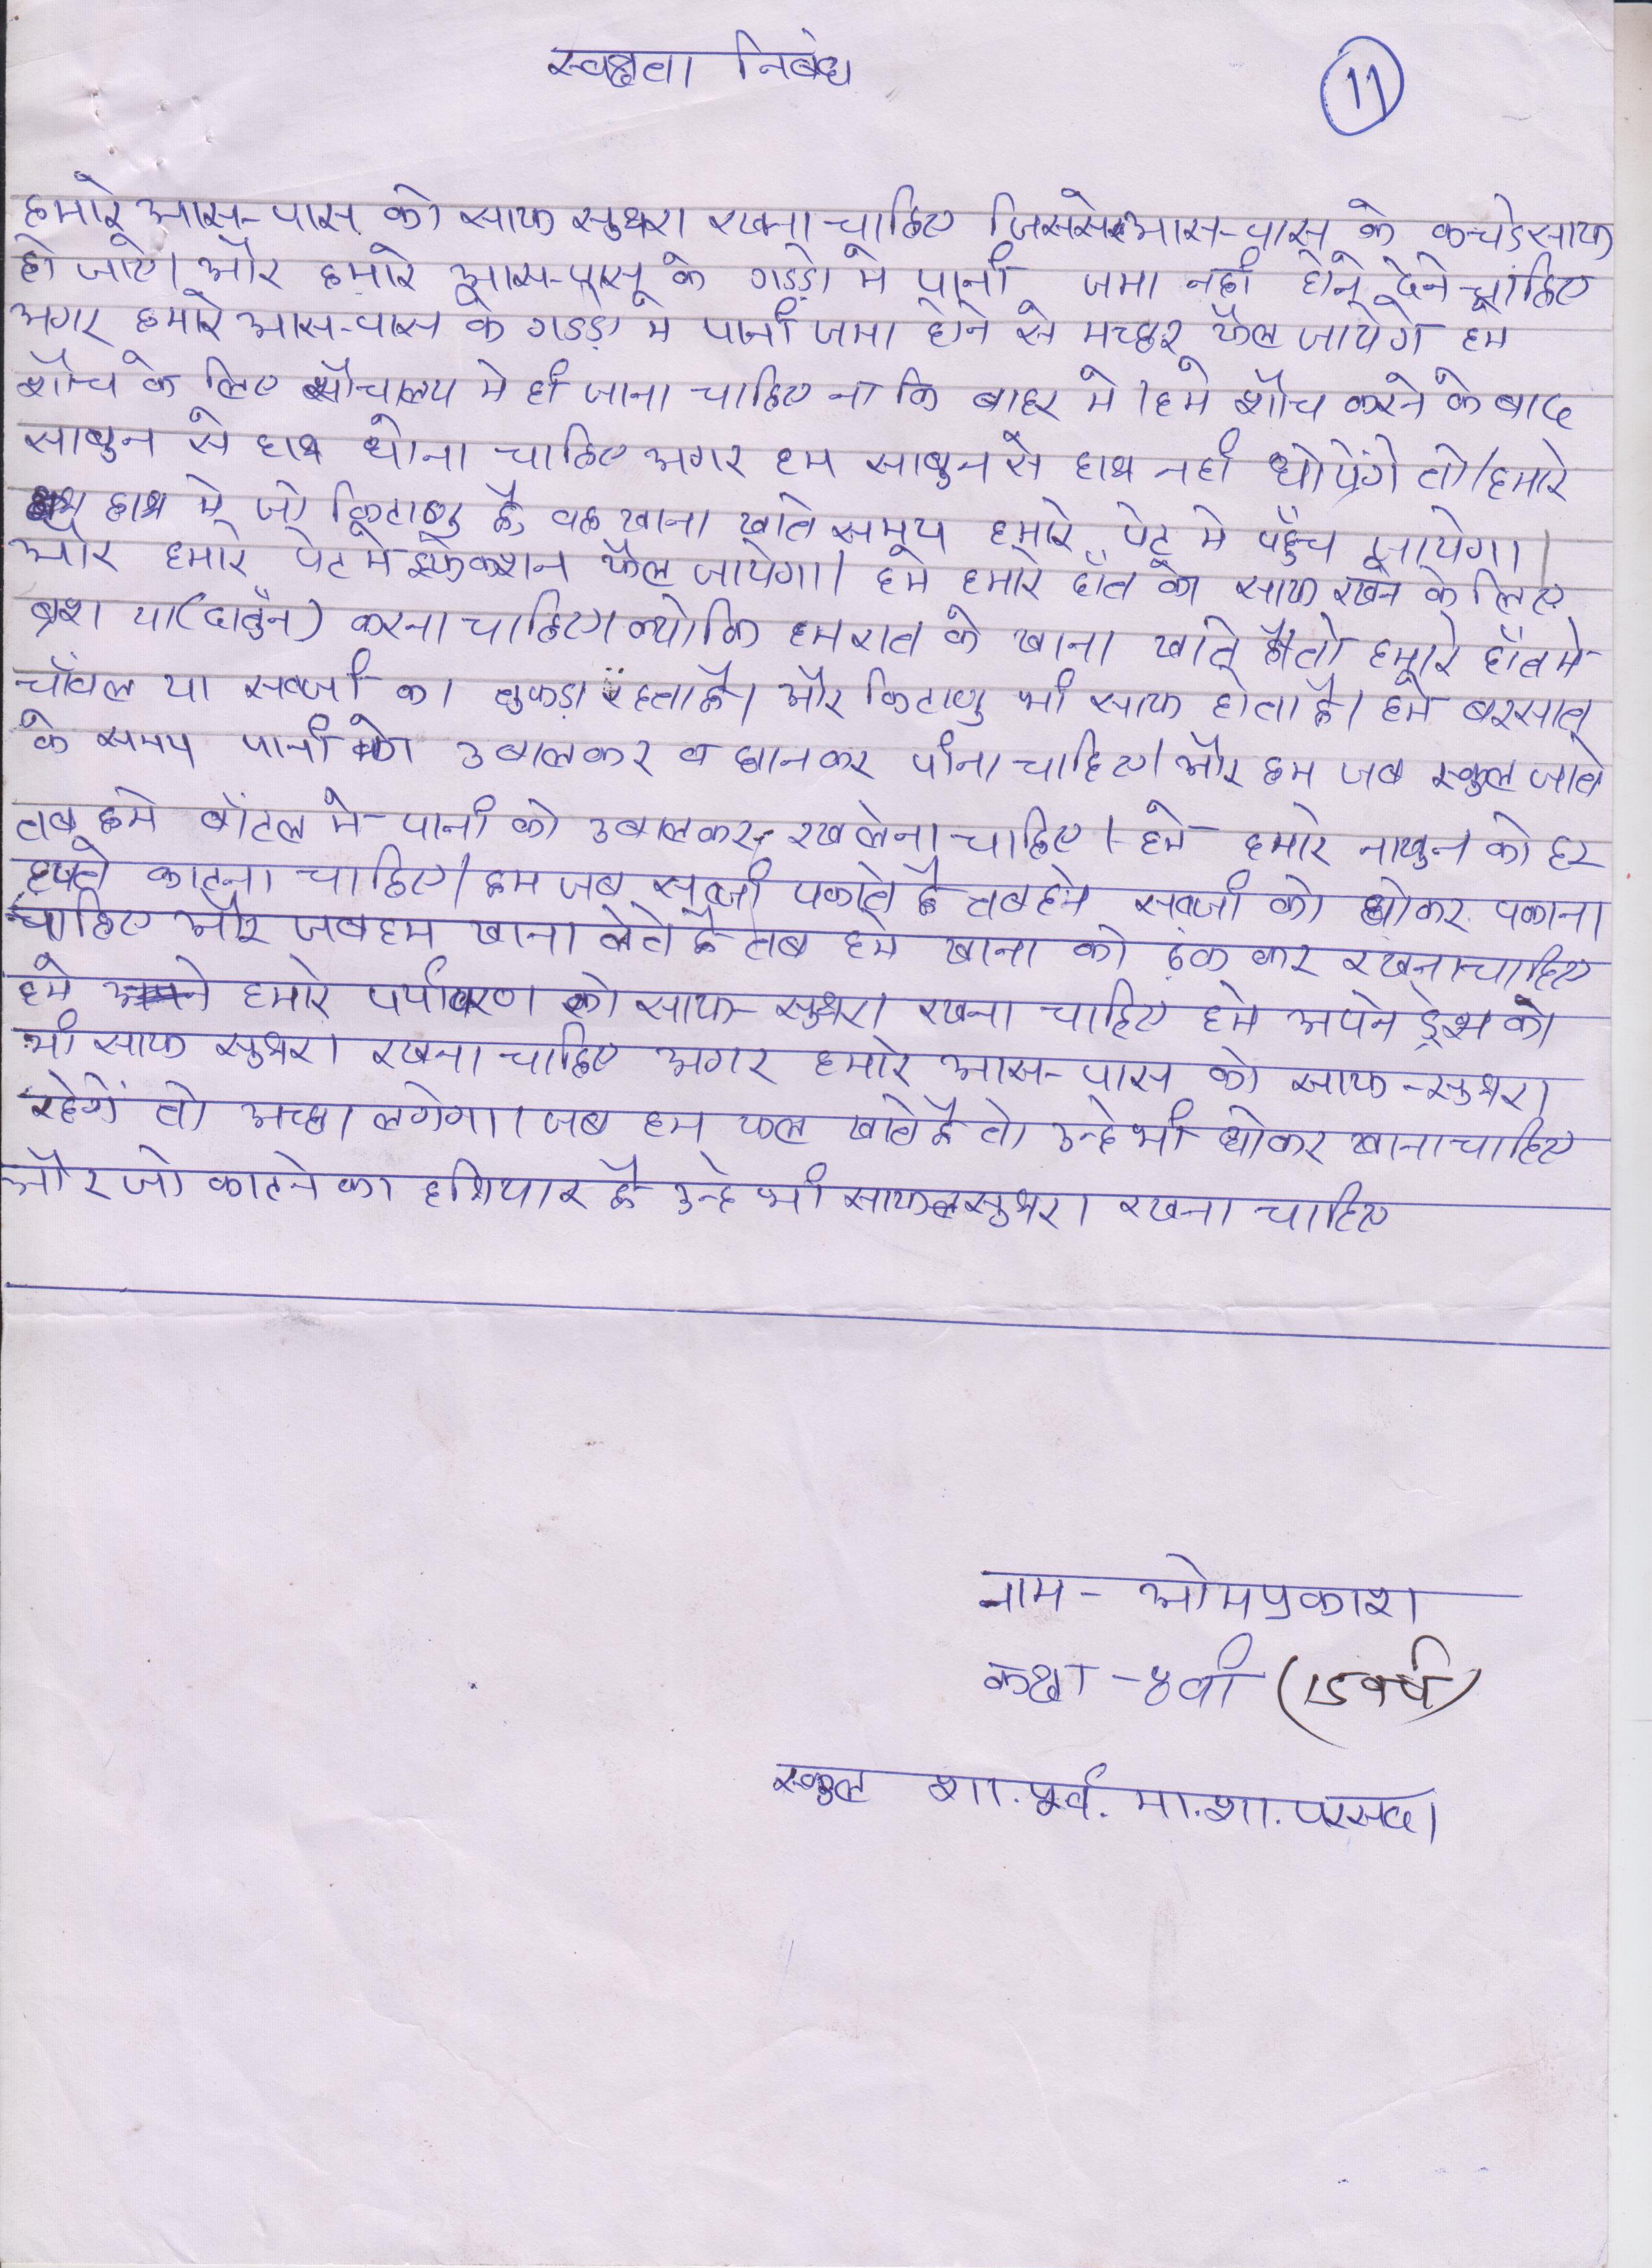 स्वछता निबंध
11
हमारे आस-पास को साफ सुथरा रखना चाहिए जिससे आस-पास के कचड़े साफ
हो जाए। और हमारे आस-पास के गडड़ो मे पानी जमा नही होने देने चाहिए
अगर हमारे आस-पास के गडड़ो मे पानी जमा होने से मच्छर फैल जायेगे हमे
शौच के लिए शौचालय मे ही जाना चाहिए ना कि बाहर मे। हमे शौच करने के बाद
साबुन से हाथ धोना चाहिए अगर हम साबुन से हाथ नही धोयेंगे तो। हमारे
हाथ मे जो किटाणु है वह खाना खाते समय हमारे पेट मे पहुँच जायेगा।
और हमारे पेट मे इंफेकशन फैल जायेगा। हमे हमारे दाँत को साफ रखने के लिए
ब्रश या (दातुन) करना चाहिए। क्योकि हम रात के खाना खाते है तो हमारे दाँत मे
चाँवल या सब्जी का तुकड़ा रहता है। और किटाणु भी साफ होता है। हमे बरसात
के समय पानी को उबालकर व छानकर पीना चाहिए। और हम जब स्कुल जाते
तब हमे बॉटल मे पानी को उबालकर रख लेना चाहिए। हमे हमारे नाखुन को हर
हफ्ते काटना चाहिए। हम जब सब्जी पकाते है तब हमे सब्जी को धोकर पकाना
चाहिए और जब हम खाना लेते है तब हमे खाना को ढ़क कर रखना चाहिए
हमे हमारे पर्यावरण को साफ-सुथरा रखना चाहिए हमे अपने ड्रेश को
भी साफ सुथरा रखना चाहिए अगर हमारे आस-पास को साफ-सुथरा
रहेगें तो अच्छा लगेगा। जब हम फल खाते है तो उन्हे भी धोकर खाना चाहिए
और जो काटने का हथियार है उन्हे भी साफ सुथरा रखना चाहिए
नाम - ओमप्रकाश
कक्षा - 8वी (15 वर्ष)
स्कुल शा. पूर्व. मा. शा. परसदा